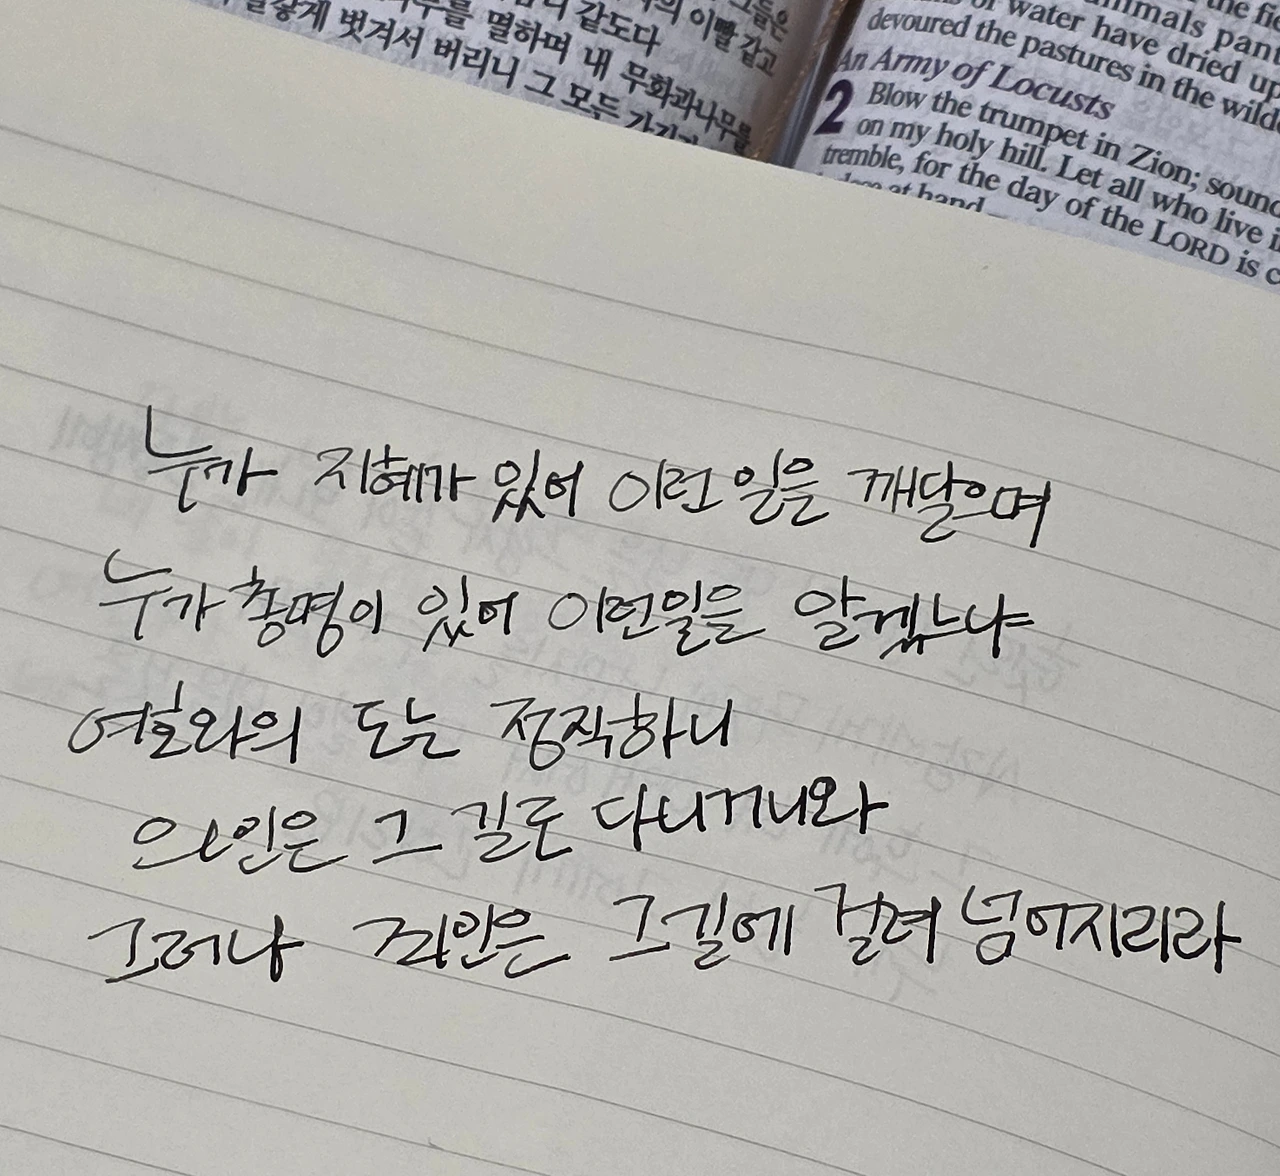 벗겨서 버리니 그 모두
멸하며 내 무화과나무를
같도다
의 이빨 같고
water have dried up
devoured the pastures in the
An Army of Locusts
2 Blow the trumpet in Zion;
on my holy hill. Let all who live
tremble, for the day of the LORD is
at hand
누가 지혜가 있어 이런 일을 깨달으며
누가 총명이 있어 이런일을 알겠느냐
여호와의 도는 정직하니
의인은 그 길로 다니거니와
그러나 죄인은 그길에 걸려 넘어지리라